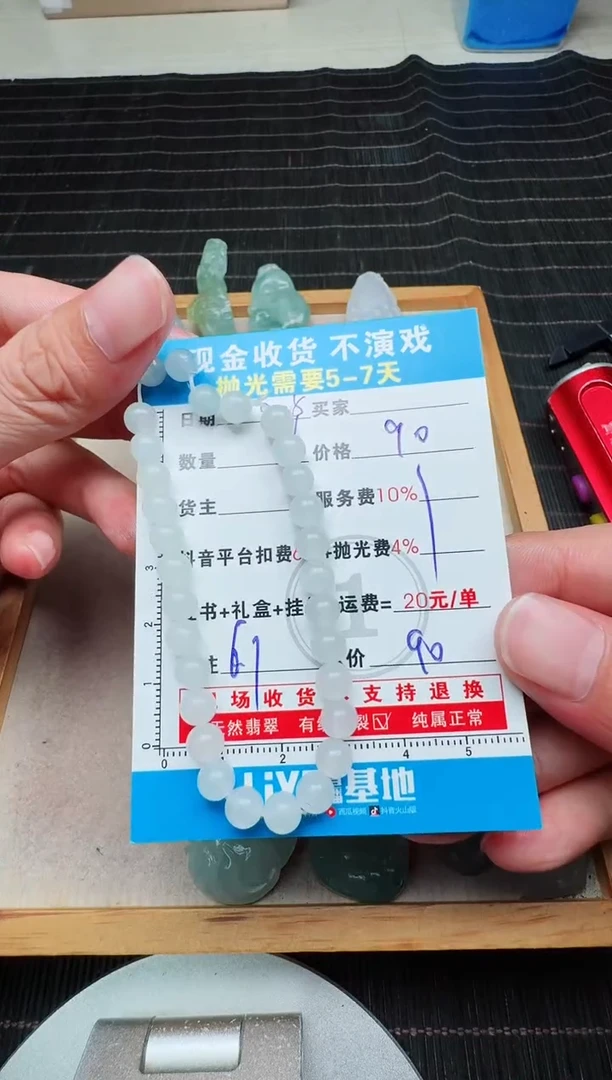 现金收货 不演戏
抛光需要5-7天
日期 买家
数量 价格 90
货主 服务费10%
抖音平台扣费 +抛光费4%
书+礼盒+挂 运费= 20元/单
主 价 90
场收货 支持退换
天然翡翠 有 裂☑ 纯属正常
0 2 4 5
0 1 2 3
基地
西瓜视频 抖音火山版